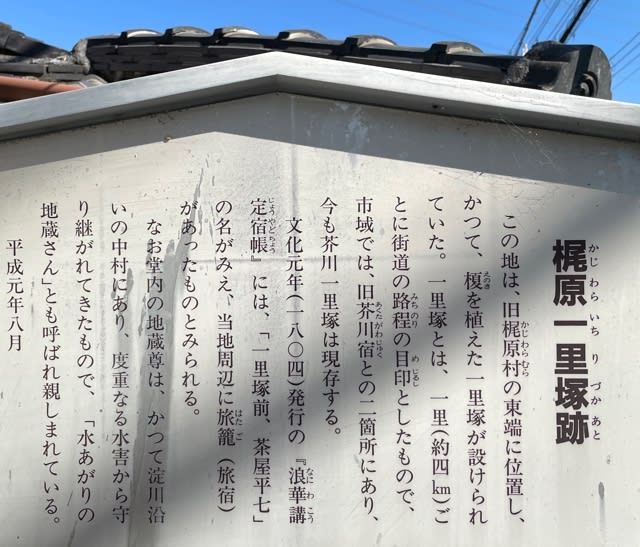 梶原一里塚跡
かじわらいちりづかあと
この地は、旧梶原村の東端に位置し、
かじわらむら
かつて、榎を植えた一里塚が設けられ
えのき
ていた。一里塚とは、一里(約四㎞)ご
とに街道の路程の目印としたもので、
みちのり
めじるし
市域では、旧芥川宿との二箇所にあり、
あくたがわじゅく
今も芥川一里塚は現存する。
文化元年(一八〇四)発行の『浪華講
なにわこう
定宿帳』には、「一里塚前、茶屋平七」
じょうやどちょう
の名がみえ、当地周辺に旅籠(旅宿)
はたご
があったものとみられる。
なお堂内の地蔵尊は、かつて淀川沿
いの中村にあり、度重なる水害から守
り継がれてきたもので、「水あがりの
地蔵さん」とも呼ばれ親しまれている。
平成元年八月